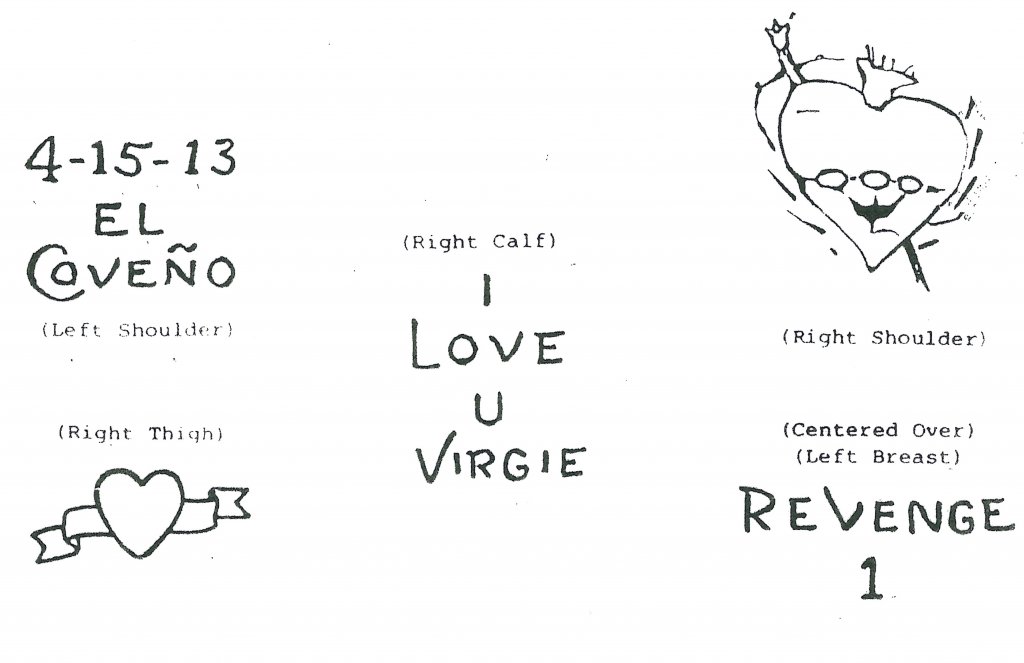 4-15-13
EL
COVEÑO
(Left Shoulder)
(Right Thigh)
(Right Calf)
I
LOVE
U
VIRGIE
(Right Shoulder)
(Centered Over)
(Left Breast)
REVENGE
1